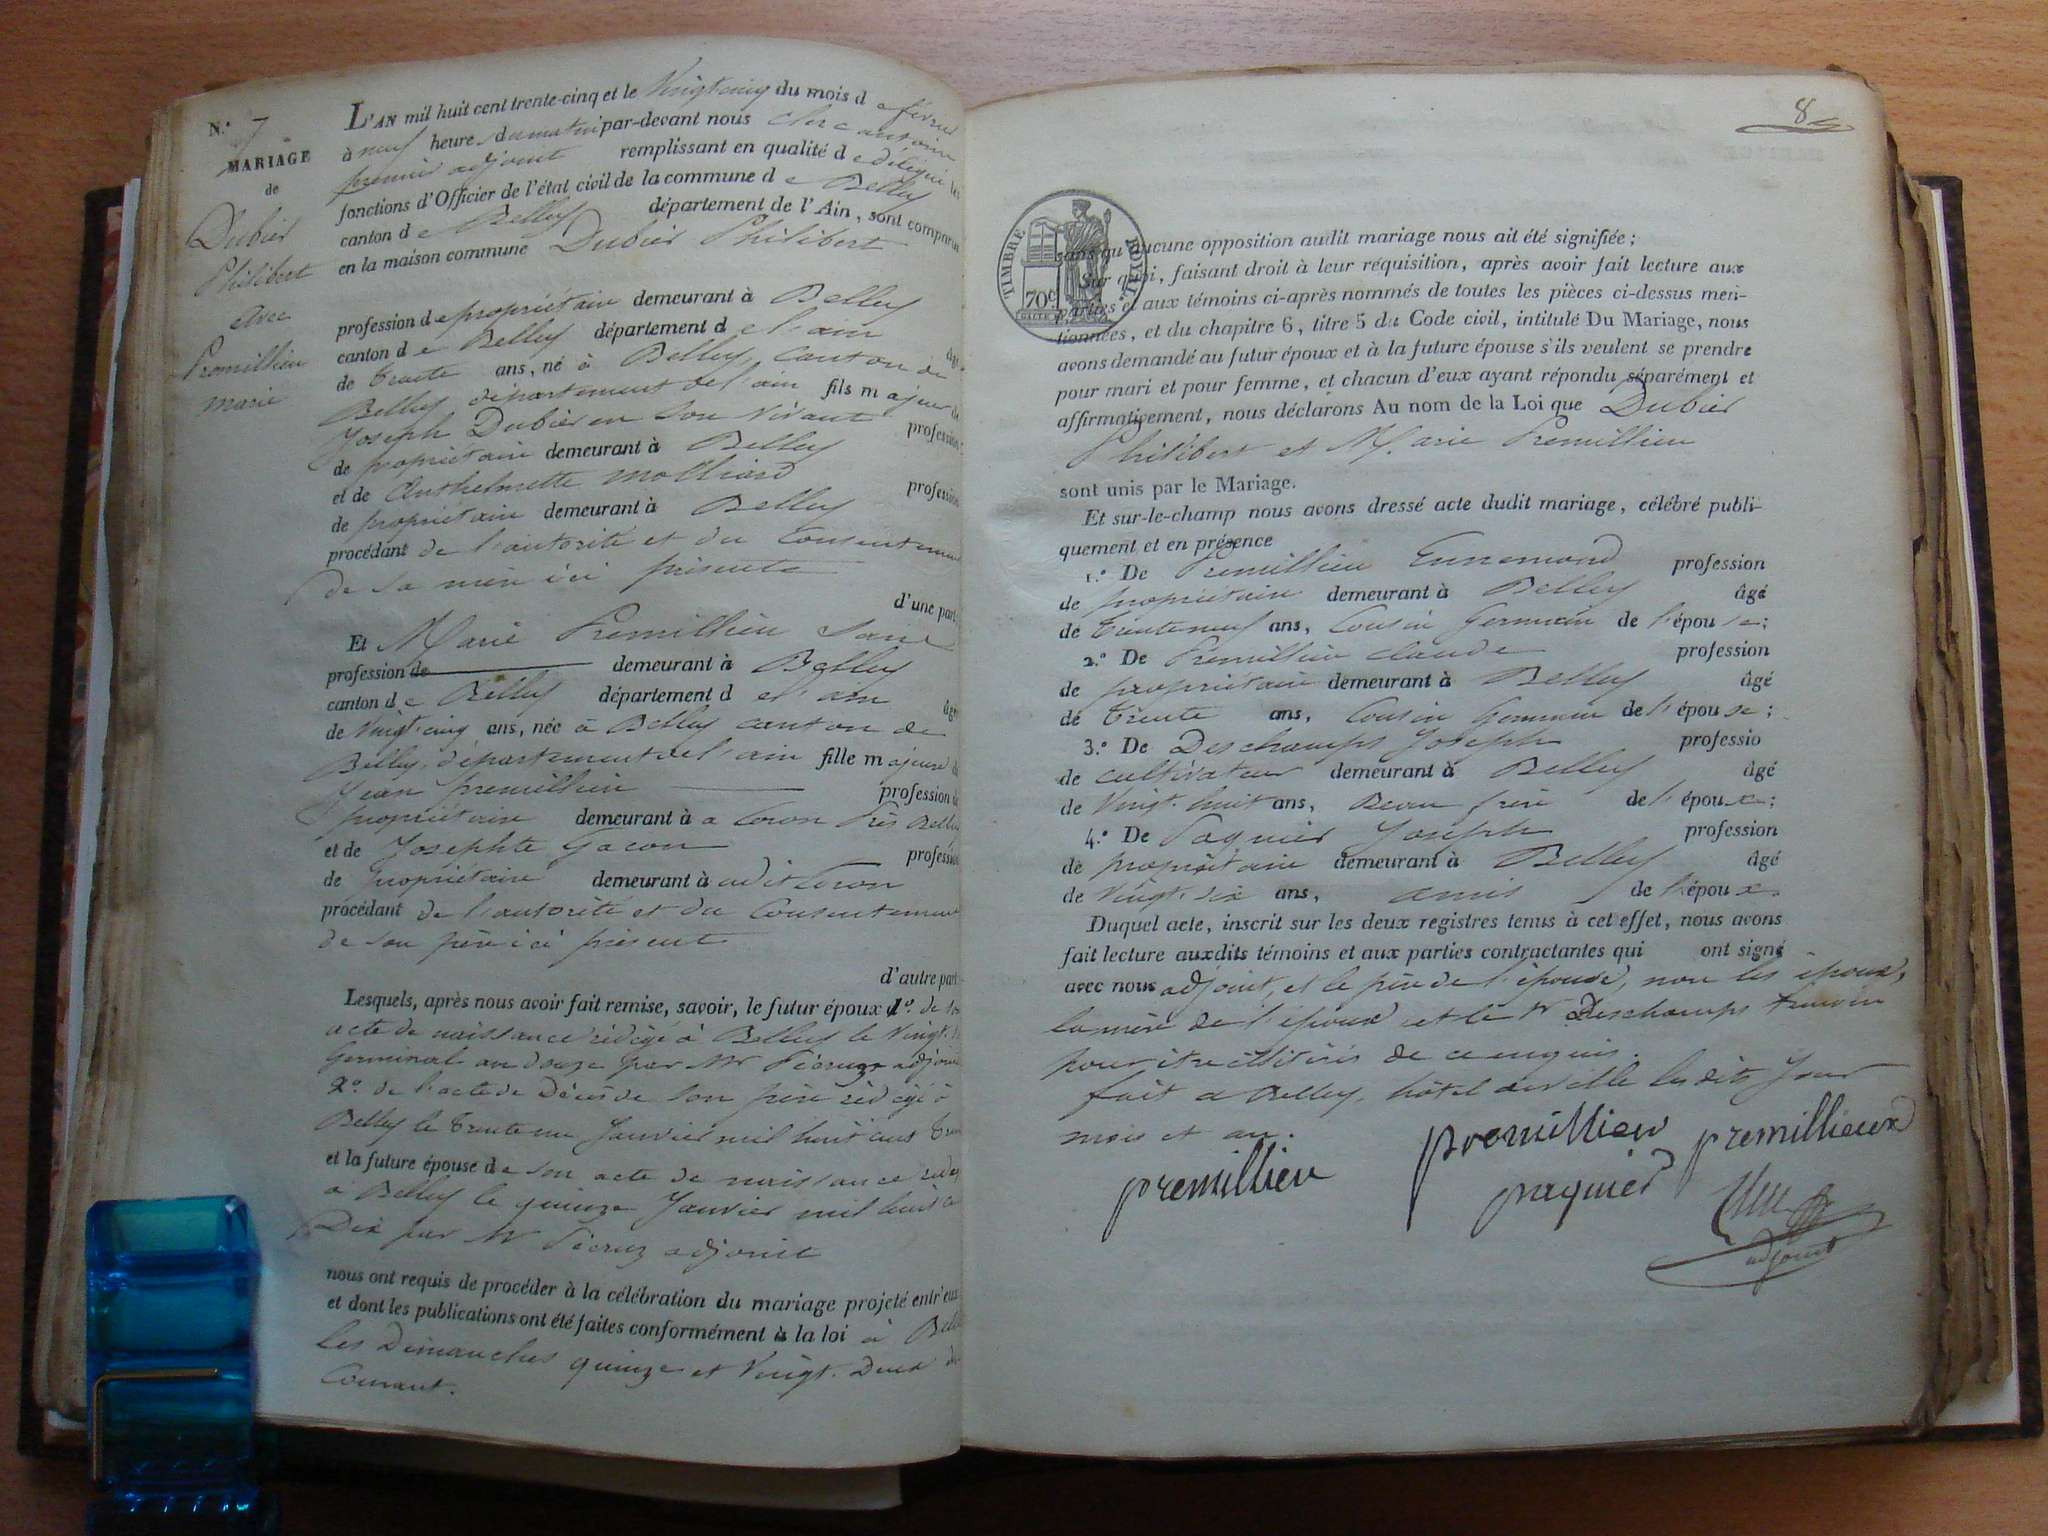 N.° 7
MARIAGE
de
Dubier
Philibert
avec
Premillieu
marie
L'AN mil huit cent trente-cinq et le Vingt cinq du mois de février
à neuf heures du matin par-devant nous
premier adjoint remplissant en qualité de délégué les
fonctions d'Officier de l'état civil de la commune de Belley
canton de Belley département de l'Ain, sont comparus
en la maison commune Dubier Philibert
profession de propriétaire demeurant à Belley
canton de Belley département de l'ain âgé
de trente ans, né à Belley, canton de
Belley département de l'ain fils majeur de
Joseph Dubier en son vivant profession
de propriétaire demeurant à Belley
et de Anthelmette molliard profession
de propriétaire demeurant à Belley
procédant de l'autorité et du consentement
de sa mère ici présente
d'une part
Et Marie Premillieu sans
profession de demeurant à Belley
canton de Belley département de l'ain âgée
de vingt-cinq ans, née à Belley canton de
Belley, département de l'ain fille majeure de
Jean premillieu profession de
propriétaire demeurant à a Coron Près Belley
et de Josephte Gacon profession
de propriétaire demeurant à audit Coron
procédant de l'autorité et du Consentement
de son père ici présent
d'autre part
Lesquels, après nous avoir fait remise, savoir, le futur époux 1.° de son
acte de naissance rédigé à Belley le Vingt
Germinal an douze par Mr adjoint
2.° de l'acte de Décès de son père rédigé à
Belley le trente un Janvier mil huit cent
et la future épouse de son acte de naissance rédigé
à Belley le quinze Janvier mil huit cent
Dix par Mr adjoint
nous ont requis de procéder à la célébration du mariage projeté entr'eux
et dont les publications ont été faites conformément à la loi à Belley
les Dimanches quinze et Vingt-Deux du
Courant.
8
TIMBRE ROYAL
70c
sans qu'aucune opposition audit mariage nous ait été signifiée ;
Sur quoi, faisant droit à leur réquisition, après avoir fait lecture aux
parties et aux témoins ci-après nommés de toutes les pièces ci-dessus men-
tionnées, et du chapitre 6, titre 5 du Code civil, intitulé Du Mariage, nous
avons demandé au futur époux et à la future épouse s'ils veulent se prendre
pour mari et pour femme, et chacun d'eux ayant répondu séparément et
affirmativement, nous déclarons Au nom de la Loi que Dubier
Philibert et Marie Premillieu
sont unis par le Mariage.
Et sur-le-champ nous avons dressé acte dudit mariage, célébré publi-
quement et en présence
1.° De Premillieu Ennemond profession
de propriétaire demeurant à Belley âgé
de trente neuf ans, Cousin Germain de l'épouse ;
2.° De Premillieu claude profession
de propriétaire demeurant à Belley âgé
de trente ans, Cousin Germain de l'épouse ;
3.° De Deschamps Joseph professio
de cultivateur demeurant à Belley âgé
de Vingt-huit ans, Beau frère de l'époux ;
4.° De Paquier Joseph profession
de propriétaire demeurant à Belley âgé
de Vingt-six ans, amis de l'époux.
Duquel acte, inscrit sur les deux registres tenus à cet effet, nous avons
fait lecture auxdits témoins et aux parties contractantes qui ont signé
avec nous adjoint, et le père de l'épouse, non les époux,
la mère de l'époux et le Sr Deschamps témoin
pour être illitérés de ce enquis.
fait a Belley, hôtel de ville les dits Jour
mois et an.
premillieu premillieu premillieux
paquier
adjoint